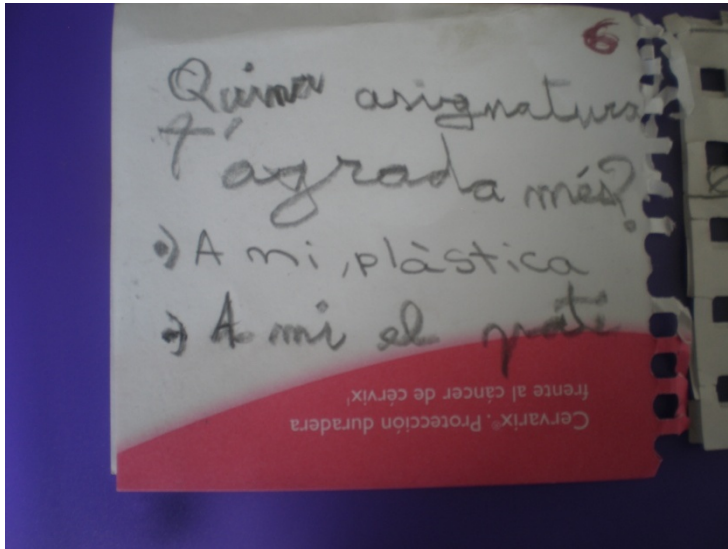 6
Quina asignatura
t'agrada més?
·) A mi, plàstica
·) A mi el pati
Cervarix®. Protección duradera
frente al cáncer de cérvix¹